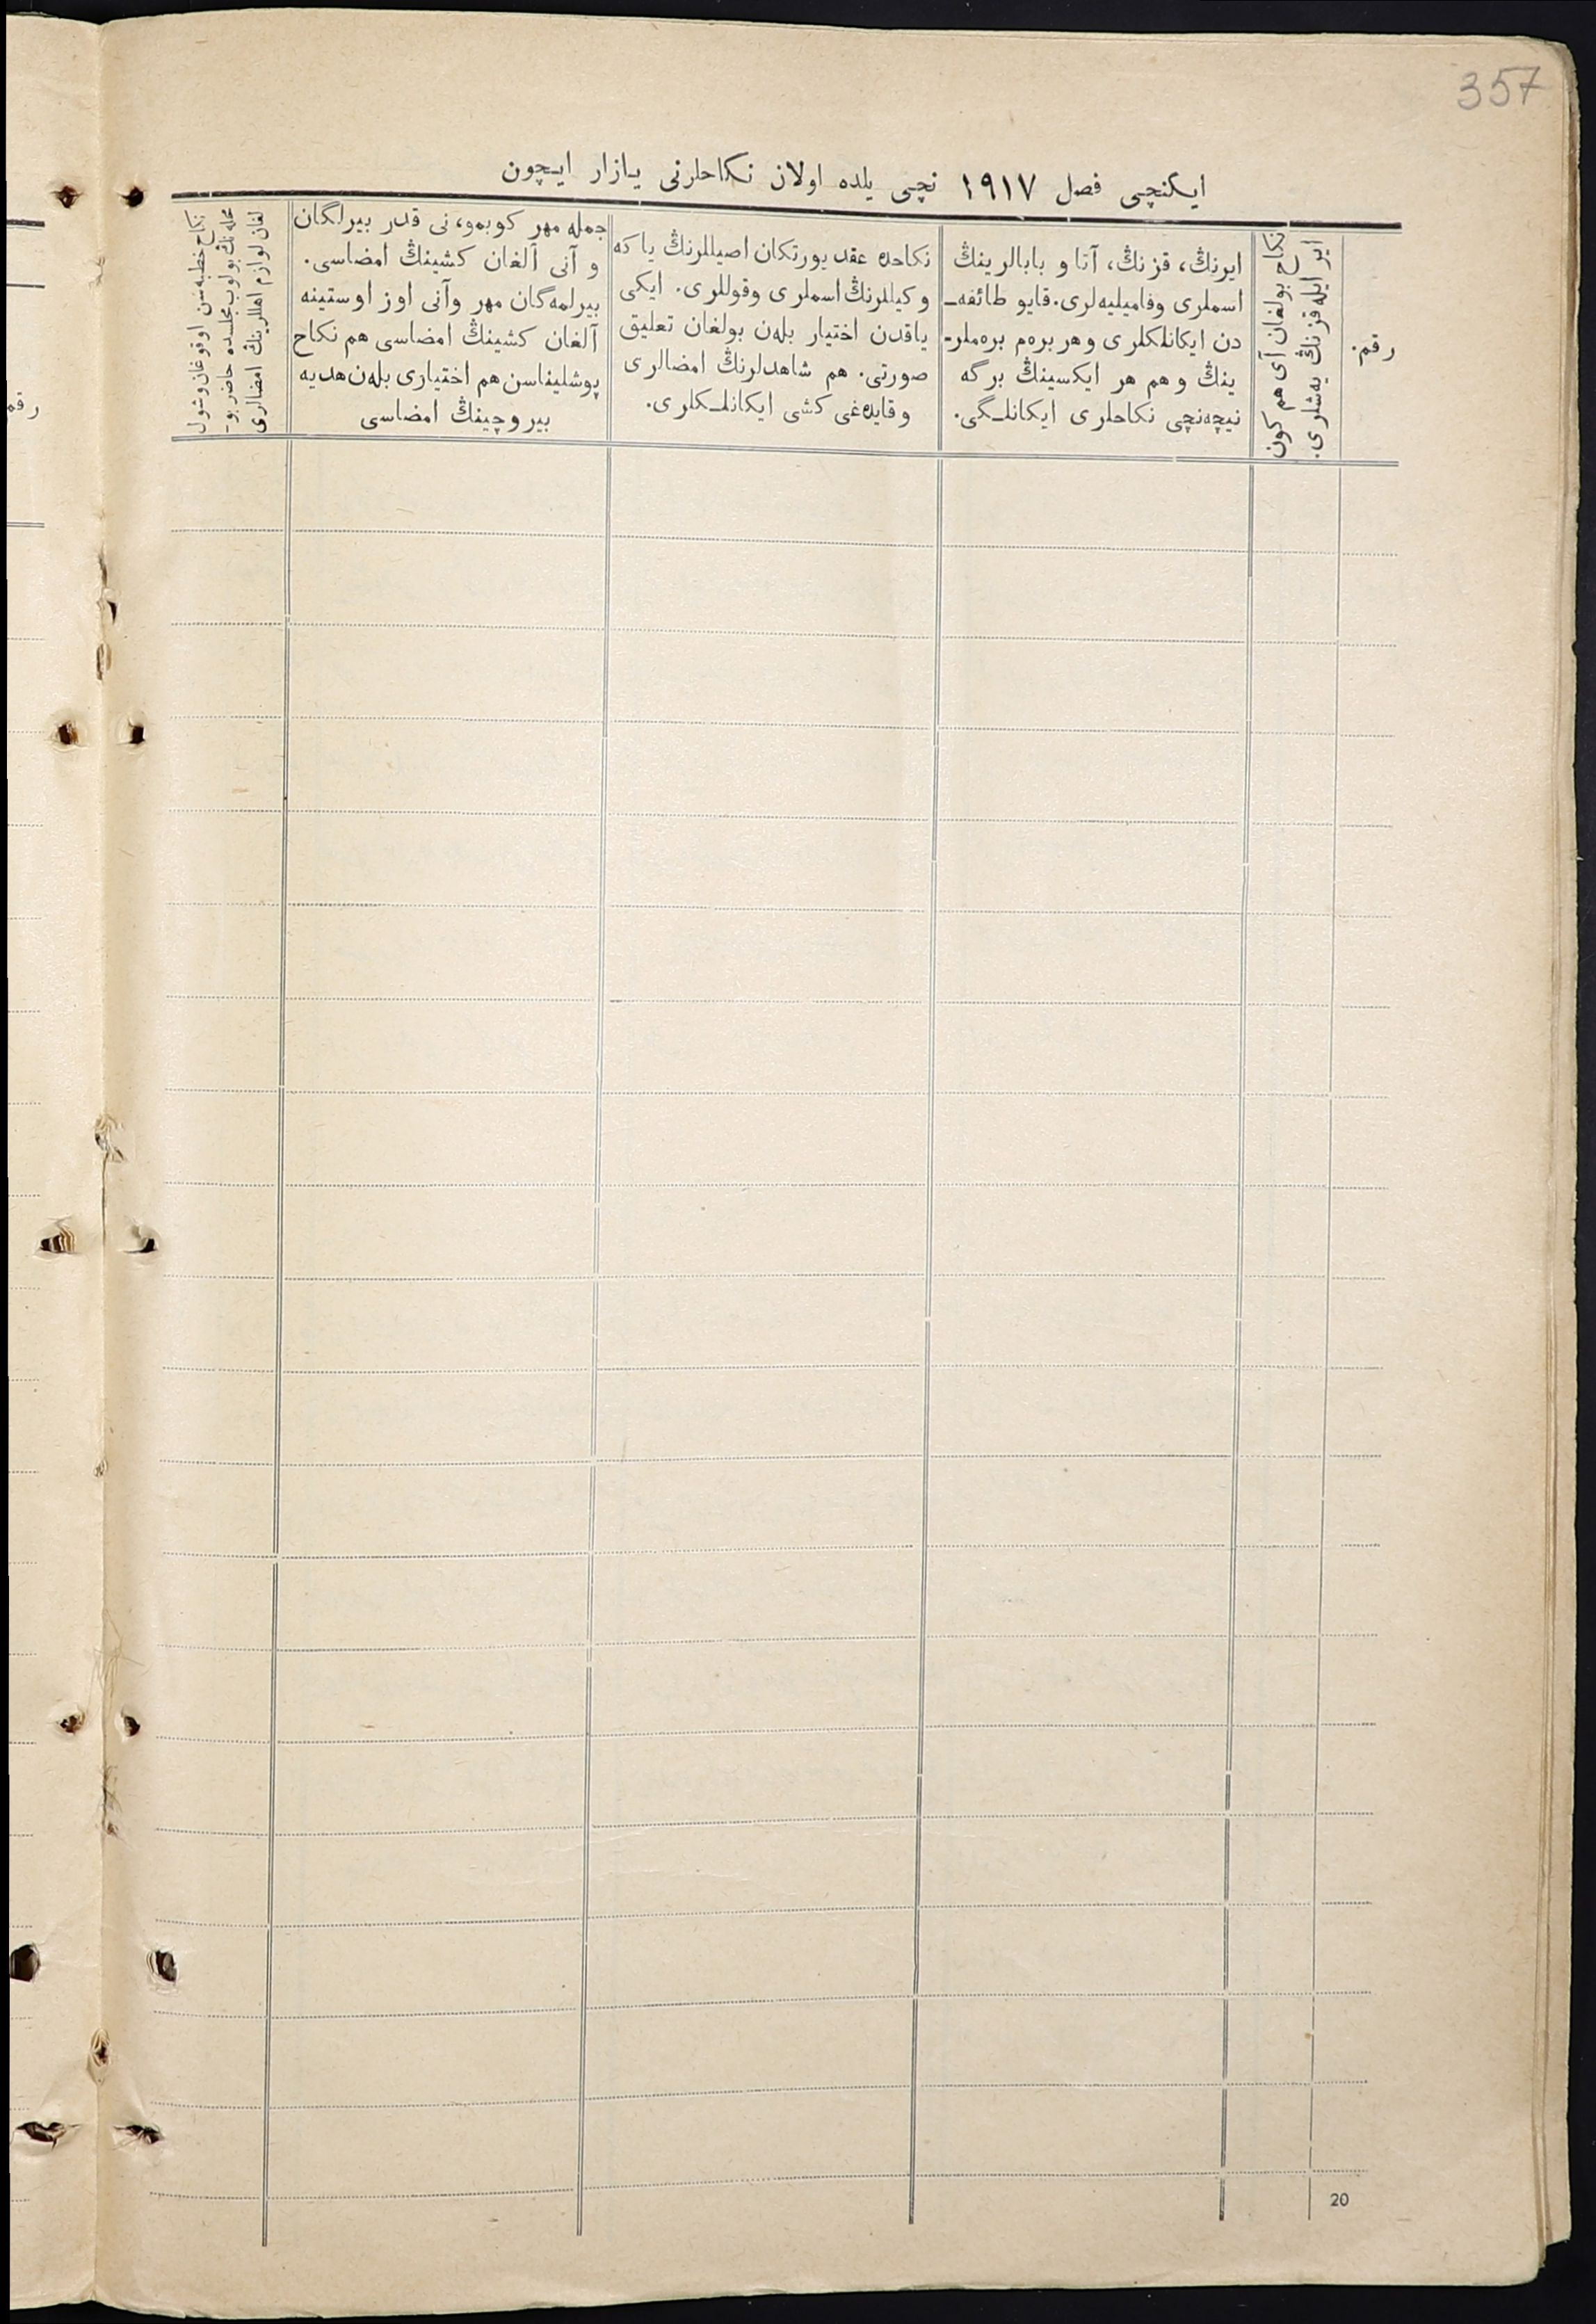 357
ایکنچی فصل ۱۹۱۷ نچی یلده اولان نکاحلرنی یازار ایچون
رقم.
نکاح بولغان آی هم کون
ایر ایله قزنڭ یه‌شلری.
ایرنڭ، قزنڭ، آتا و بابالرینڭ
اسملری وفامیلیه‌لری. قایو طائفه‌ـ
دن ایکانلکلری و هر بره‌م بره‌ملرـ
ینڭ و هم هر ایکسینڭ برگه
نیچه‌نچی نکاحلری ایکانلـگی.
نکاحده عقد یورتکان اصیللرنڭ یا که
وکیللرنڭ اسملری وقوللری. ایکی
یاقدن اختیار بله‌ن بولغان تعلیق
صورتی. هم شاهدلرنڭ امضالری
و قایده‌غی کشی ایکانلـکلری.
جمله مهر کوبمو، نی قدر بیرلگان
و آنی آلغان کشینڭ امضاسی.
بیرلمه‌گان مهر وآنی اوز اوستینه
آلغان کشینڭ امضاسی هم نکاح
پوشلیناسن هم اختیاری بله‌ن هدیه
بیروچینڭ امضاسی
نکاح خطبه‌سن اوقوغان وشول
محله‌نڭ بولوب مجلسده حاضر بوـ
لغان لوازم اهللرینڭ امضالری
رقم
20